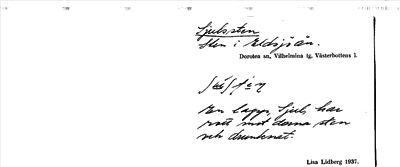 Sjulssten
Sten i Eldsjön.
Dorotea sn, Vilhelmina tg, Västerbottens l.
En lapp, Sjul, har
rott mot denna sten
och drunknat.
Lisa Lidberg 1937.